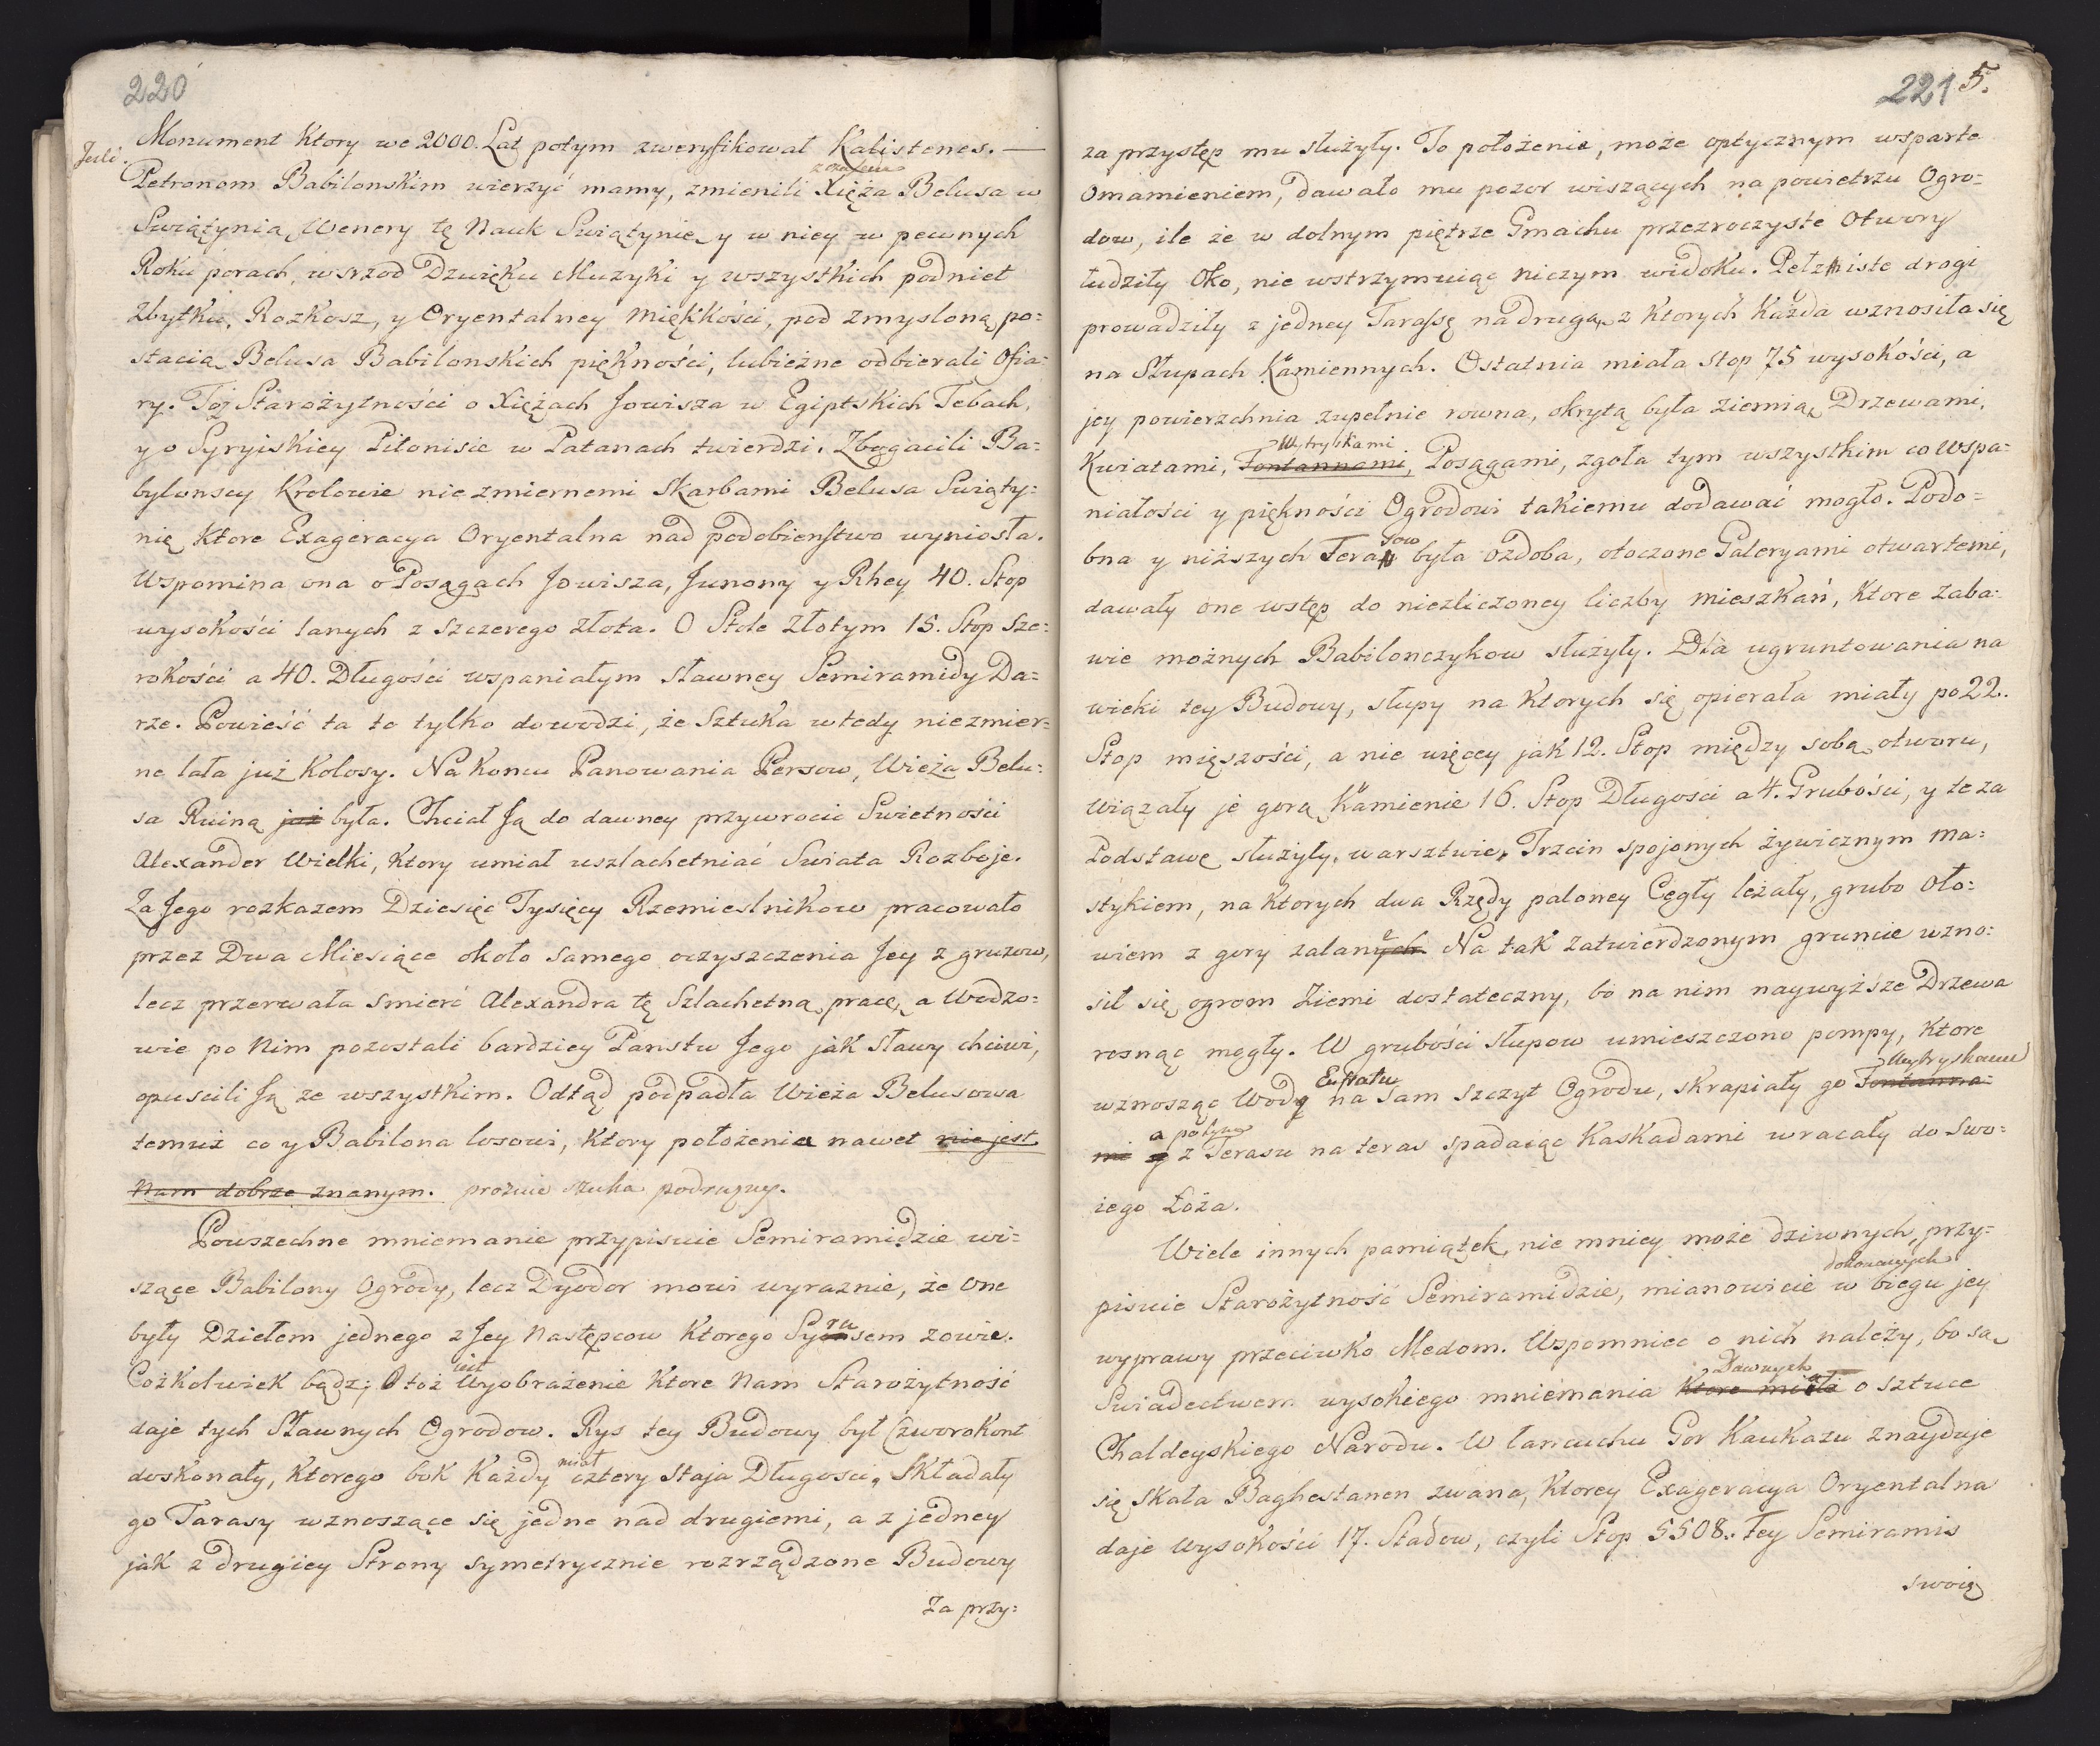 220
Monument Ktory we 2000. Lat potym zweryfikował Kalistenes. —
Jeśli
z czasem
Petronom Babilonskim wierzyć mamy, zmienili Xięża Belusa w
Swiątynią Wenery tę Nauk Swiątynię y w niey w pewnych
Roku porach, wsrzod Dzwięku Muzyki y wszystkich podniet
Zbytku, Rozkosz, y Oryentalney Miękkości, pod Zmysloną po=
stacią Belusa Babilonskich piękności, lubieżne odbierali Ofia=
ry. Toż Starożytności o Xiężach Jowisza w Egiptskich Tebach,
y o Syryiskiey Pitonisie w Patanach twierdzi. Zbogacili Ba=
bylonscy Krolowie niezmiernemi Skarbami Belusa Swiąty=
nię Ktore Exageracya Oryentalna nad podobienstwo wyniosła.
Wspomina ona o Posągach Jowisza, Junony y Rhey 40. Stop
wysokości lanych z szczerego złota. O Stole złotym 15. Stop Sze=
rokości a 40. Długości wspaniałym sławney Semiramidy Da=
rze. Powieść ta to tylko dowodzi, że Sztuka wtedy niezmier=
ne lała już Kolosy. Na Koncu Panowania Persow, Wieża Belu=
sa Ruiną już była. Chciał Ją do dawney przywrocić Swietności
Alexander Wielki, Ktory umiał uszlachetniać Swiata Rozboje.
Za Jego rozkazem Dziesięć Tysięcy Rzemieslnikow pracowało
przez Dwa Miesiące około samego oczyszczenia Jey z gruzow,
lecz przerwała smierć Alexandra tę Szlachetną pracę, a Wodzo=
wie po Nim pozostali bardziey Panstw Jego jak sławy chciwi,
opuscili Ją ze wszystkim. Odtąd podpadła Wieża Belusowa
temuż co y Babilona losowi, Ktory położenia nawet nie jest
Nam dobrze znanym. proznie szuka podrużny.
Powszechne mniemanie przypisuie Semiramidzie wi=
szące Babilony Ogrody, lecz Dyodor mowi wyraznie, że one
były Dziełem jednego z Jey Następcow Ktorego Syrusem zowie.
jest
Cożkolwiek bądz; Otoż Wyobrażenie Ktore Nam Starożytność
daje tych Sławnych Ogrodow. Rys tey Budowy był Czworokont
miał
doskonały, Ktorego bok Każdy cztery staja Długosci. Składały
go Tarasy wznoszące się jedne nad drugiemi, a z jedney
jak z drugiey Strony symetrycznie rozrządzone Budowy
Za przy=
221 5.
za przystęp mu służyły. To położenie, może optycznym wsparte
Omamieniem, dawało mu pozor wiszących na powietrzu Ogro=
dow, ile że w dolnym piętrze Gmachu przezroczyste Otwory
łudziły Oko, nie wstrzymuiąc niczym widoku. Pełzniste drogi
prowadziły z jedney Tarassę na drugą, z Ktorych Każda wznosiła się
na Słupach Kamiennych. Ostatnia miała Stop 75 wysokości, a
jey powierzchnia zupełnie rowna, okrytą była ziemią, Drzewami,
Wytryskami
Kwiatami, Fontannami, Posągami, zgoła tym wszystkim co Wspa=
niałości y piękności Ogrodowi takiemu dodawać mogło. Podo=
sow
bna y niższych Tera była ozdoba, otoczone Galeryami otwartemi,
dawały one wstęp do niezliczoney liczby mieszkań, Ktore Zaba=
wie możnych Babilonczykow służyły. Dla ugruntowania na
wieki tey Budowy, słupy na Ktorych się opierała miały po 22.
Stop mięszości, a nie więcey jak 12. Stop między sobą otworu,
Wiązały je gorą Kamienie 16. Stop Długosci a 4. Grubości, y te za
Podstawę służyły warsztwie Trzcin spojonych żywicznym Ma=
stykiem, na Ktorych dwa Rzędy paloney Cegły leżały, grubo oło=
e
wiem z gory zalanych Na tak zatwierdzonym gruncie wzno=
sił się ogrom Ziemi dostateczny, bo na nim naywyższe Drzewa
rosnąć mogły. W grubości słupow umieszczono pompy, Ktore
Eufratu
Wytryskami
wznosząc Wodę na sam szczyt Ogrodu, skrapiały go Fontanna=
a potym
mi y z Terasu na teras spadaiąc Kaskadami wracały do Swo=
iego Łoża.
Wiele innych pamiątek, nie mniey może dziwnych, przy=
dokonanych
pisuie Starożytność Semiramidzie, mianowicie w biegu jey
wyprawy przeciwko Medom. Wspomniec o nich należy, bo są
Dawnych
Swiadectwem wysokiego mniemania Ktore miała o sztuce
Chaldeyskiego Narodu. W łancuchu Gor Kaukazu znayduje
się Skała Baghestanen zwana, Ktorey Exageracya Oryentalna
daje Wysokości 17. Stadow, czyli Stop 5508. Tey Semiramis
swoię